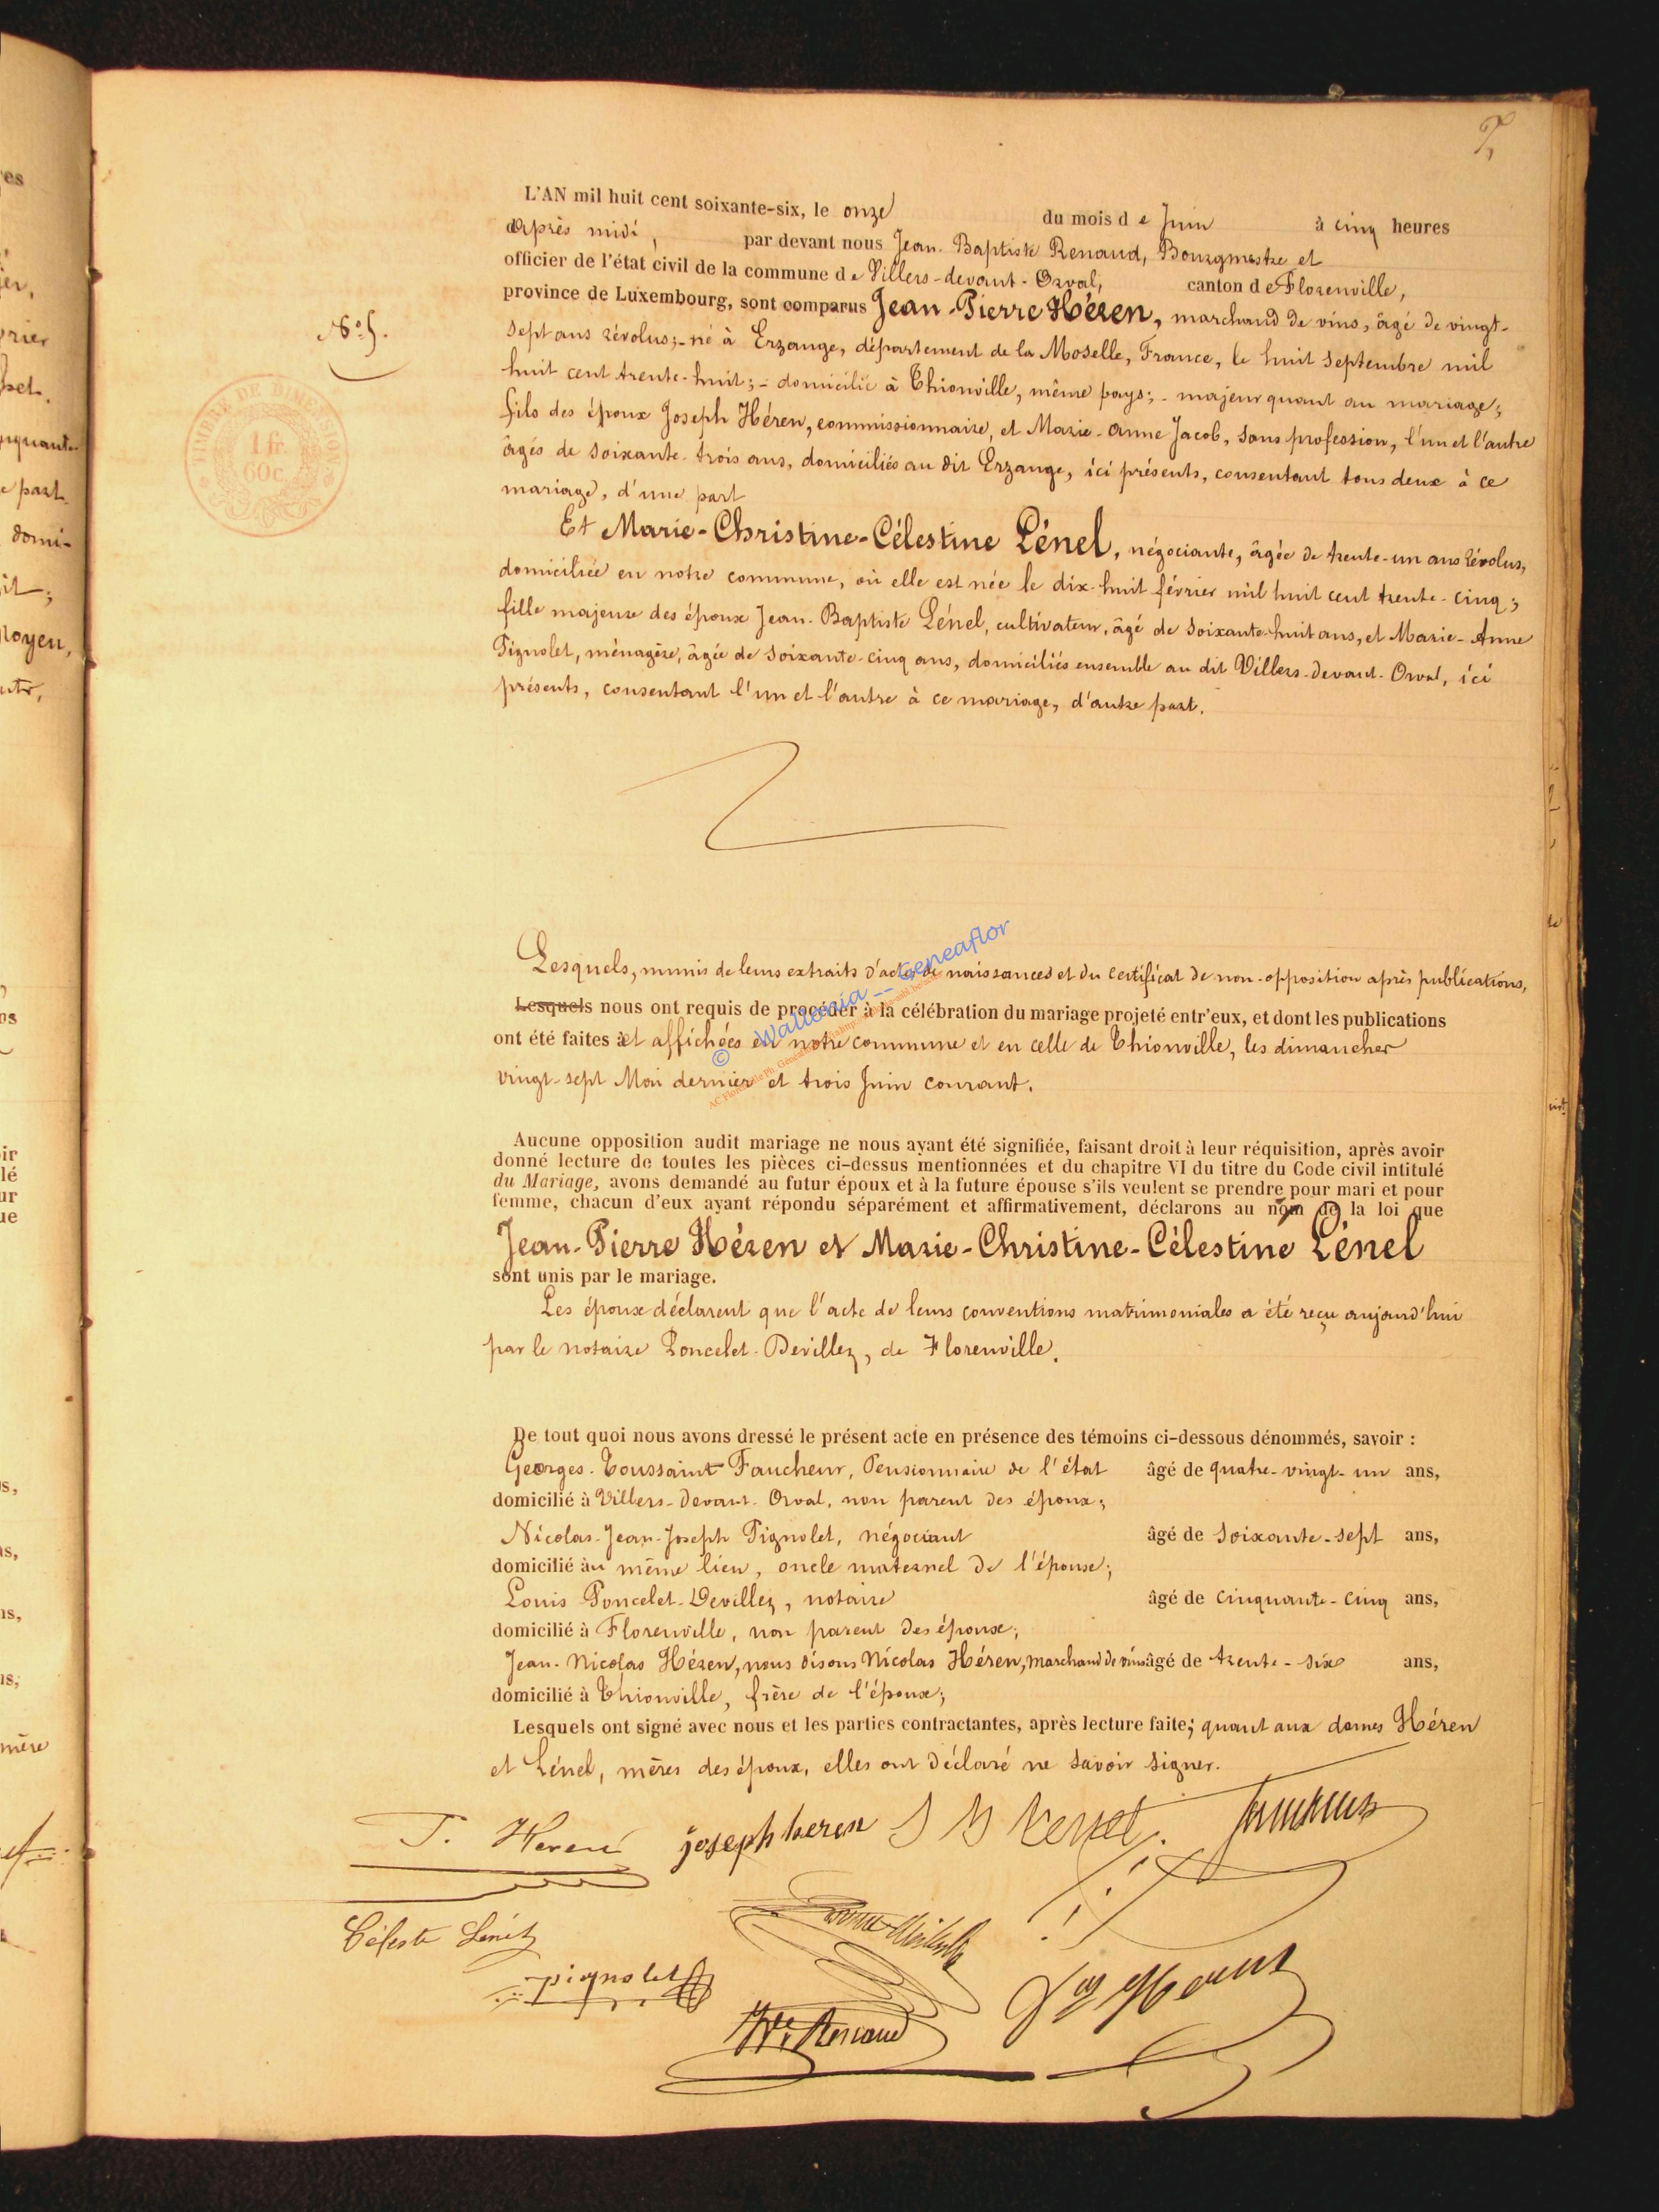 7,
L'AN mil huit cent soixante-six, le onze du mois de Juin à cinq heures
après midi, par devant nous Jean-Baptiste Renaud, Bourgmestre et
officier de l'état civil de la commune de Villers-devant-Orval, canton de Florenville,
province de Luxembourg, sont comparus Jean-Pierre Héren, marchand de vins, âgé de vingt-
sept ans révolus; - né à Erzange, département de la Moselle, France, le huit Septembre mil
huit cent trente-huit; - domicilié à Thionville, même pays; - majeur quant au mariage;
fils des époux Joseph Héren, commissionnaire, et Marie-Anne Jacob, sans profession, l'un et l'autre
âgés de soixante-trois ans, domiciliés au dit Erzange, ici présents, consentant tous deux à ce
mariage, d'une part
N° 5.
TIMBRE DE DIMENSION
1 fr.
60 c.
Et Marie-Christine-Célestine Lénel, négociante, âgée de trente-un ans révolus,
domiciliée en notre commune, où elle est née le dix-huit février mil huit cent trente-cinq;
fille majeure des époux Jean-Baptiste Lénel, cultivateur, âgé de soixante-huit ans, et Marie-Anne
Pignolet, ménagère, âgée de soixante-cinq ans, domiciliés ensemble au dit Villers-devant-Orval, ici
présents, consentant l'un et l'autre à ce mariage, d'autre part.
Lesquels, munis de leurs extraits d'actes de naissances et du certificat de non-opposition après publications,
Lesquels nous ont requis de procéder à la célébration du mariage projeté entr'eux, et dont les publications
ont été faites et affichées en notre commune et en celle de Thionville, les dimanches
vingt-sept Mai dernier et trois Juin courant.
© Wallonia -- Geneaflor
Aucune opposition audit mariage ne nous ayant été signifiée, faisant droit à leur réquisition, après avoir
donné lecture de toutes les pièces ci-dessus mentionnées et du chapitre VI du titre du Code civil intitulé
du Mariage, avons demandé au futur époux et à la future épouse s'ils veulent se prendre pour mari et pour
femme, chacun d'eux ayant répondu séparément et affirmativement, déclarons au nom de la loi que
Jean-Pierre Héren et Marie-Christine-Célestine Lénel
sont unis par le mariage.
Les époux déclarent que l'acte de leurs conventions matrimoniales a été reçu aujourd'hui
par le notaire Poncelet-Devillez, de Florenville.
De tout quoi nous avons dressé le présent acte en présence des témoins ci-dessous dénommés, savoir :
Georges-Toussaint Faucheur, Pensionnaire de l'état âgé de quatre-vingt-un ans,
domicilié à Villers-devant-Orval, non parent des époux;
Nicolas-Jean-Joseph Pignolet, négociant âgé de soixante-sept ans,
domicilié au même lieu, oncle maternel de l'épouse;
Louis Poncelet-Devillez, notaire âgé de cinquante-cinq ans,
domicilié à Florenville, non parent des époux;
Jean-Nicolas Héren, nous disons Nicolas Héren, marchand de vins âgé de trente-six ans,
domicilié à Thionville, frère de l'époux;
Lesquels ont signé avec nous et les parties contractantes, après lecture faite; quant aux dames Héren
et Lénel, mères des époux, elles ont déclaré ne savoir signer.
joseph heren
Céleste Lénel
pignolet
Renaud